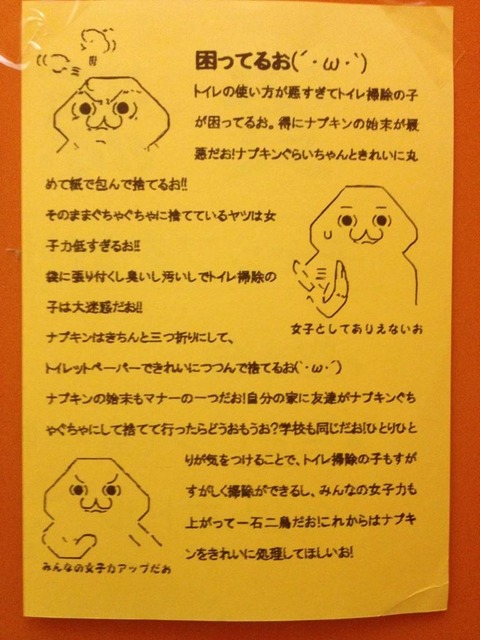 困ってるお(´・ω・`)
トイレの使い方が悪すぎてトイレ掃除の子
が困ってるお。得にナプキンの始末が最
悪だお!ナプキンぐらいちゃんときれいに丸
めて紙で包んで捨てるお!!
そのままぐちゃぐちゃに捨てているヤツは女
子力低すぎるお!!
袋に張り付くし臭いし汚いしでトイレ掃除の
子は大迷惑だお!!
女子としてありえないお
ナプキンはきちんと三つ折りにして、
トイレットペーパーできれいにつつんで捨てるお(`・ω・´)
ナプキンの始末もマナーの一つだお!自分の家に友達がナプキンぐち
ゃぐちゃにして捨てて行ったらどうおもうお?学校も同じだお!ひとりひと
りが気をつけることで、トイレ掃除の子もすが
すがしく掃除ができるし、みんなの女子力も
上がって一石二鳥だお!これからはナプキ
ンをきれいに処理してほしいお!
みんなの女子力アップだお